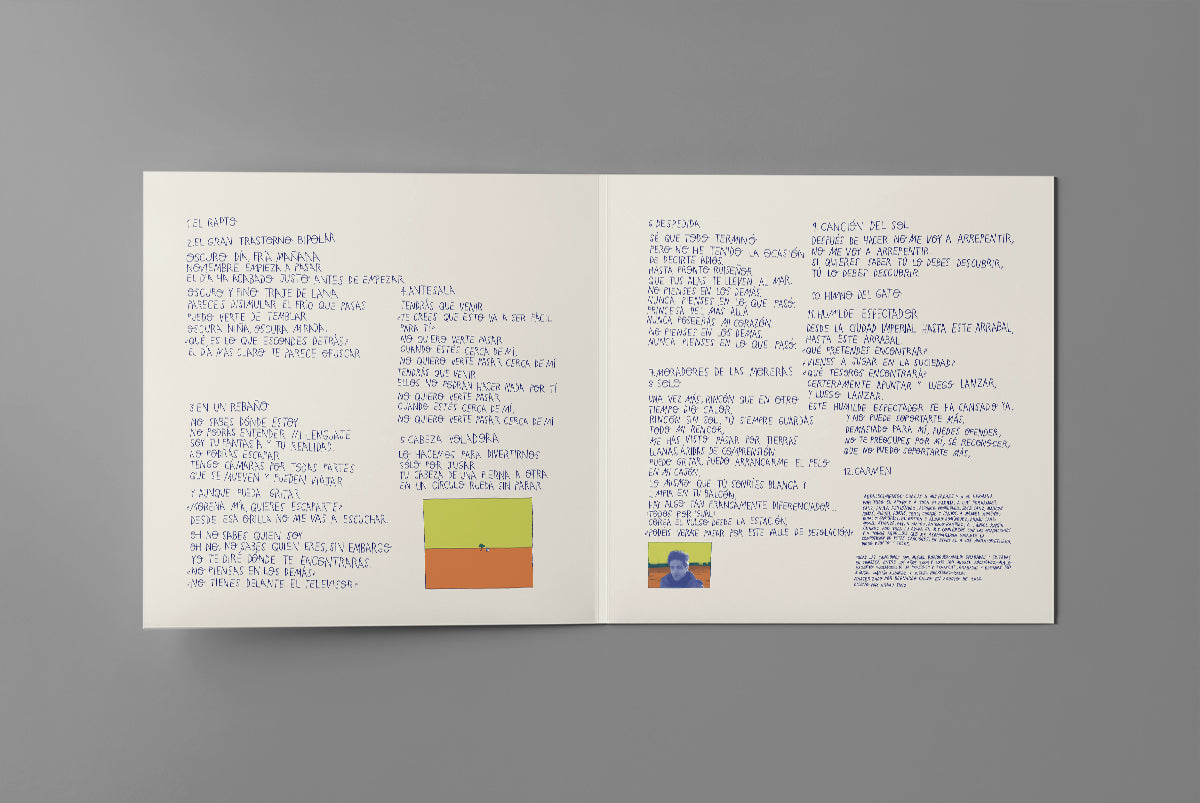 1. EL RAPTO
2. EL GRAN TRASTORNO BIPOLAR
OSCURO DÍA, FRÍA MAÑANA
NOVIEMBRE EMPIEZA A PASAR
EL DÍA HA ACABADO JUSTO ANTES DE EMPEZAR
OSCURO Y FINO TRAJE DE LANA
PARECES DISIMULAR EL FRÍO QUE PASAS
PUEDO VERTE DE TEMBLAR
OSCURA NIÑA, OSCURA MIRADA.
¿QUÉ ES LO QUE ESCONDES DETRÁS?
EL DÍA MÁS CLARO TE PARECE OFUSCAR
3. EN UN REBAÑO
NO SABES DÓNDE ESTOY
NO PODRÁS ENTENDER MI LENGUAJE
SOY TU FANTASÍA Y TU REALIDAD.
NO PODRÁS ESCAPAR
TENGO CÁMARAS POR TODAS PARTES
QUE SE MUEVEN Y PUEDEN MATAR
Y AUNQUE PUEDA GRITAR
¿MORENA MÍA, QUIERES ESCAPARTE?
DESDE ESA ORILLA NO ME VAS A ESCUCHAR.
OH NO SABES QUIEN SOY
OH NO, NO SABES QUIEN ERES, SIN EMBARGO
YO TE DIRÉ DÓNDE TE ENCONTRARÁS
¿NO PIENSAS EN LOS DEMÁS?
¿NO TIENES DELANTE EL TELEVISOR?
4. ANTESALA
TENDRÁS QUE VENIR
¿TE CREES QUE ESTO VA A SER FÁCIL
PARA TÍ?
NO QUIERO VERTE PASAR
CUANDO ESTÉS CERCA DE MÍ,
NO QUIERO VERTE PASAR CERCA DE MÍ
TENDRÁS QUE VENIR
ELLOS NO PODRÁN HACER NADA POR TÍ
NO QUIERO VERTE PASAR
CUANDO ESTÉS CERCA DE MÍ,
NO QUIERO VERTE PASAR CERCA DE MÍ
5. CABEZA VOLADORA
LO HACEMOS PARA DIVERTIRNOS
SÓLO POR JUGAR
TU CABEZA DE UNA PIERNA A OTRA
EN UN CÍRCULO RUEDA SIN PARAR
6. DESPEDIDA
SÉ QUE TODO TERMINÓ
PERO NO HE TENIDO LA OCASIÓN
DE DECIRTE ADIÓS.
HASTA PRONTO RUISEÑOR
QUE TUS ALAS TE LLEVEN AL MAR.
NO PIENSES EN LOS DEMÁS,
NUNCA PIENSES EN LO QUE PASÓ.
PRINCESA DEL MÁS ALLÁ
NUNCA POSEERÁS MI CORAZÓN
NO PIENSES EN LOS DEMÁS,
NUNCA PIENSES EN LO QUE PASÓ.
7. MORADORES DE LAS MORERAS
8. SOLO
UNA VEZ MÁS, RINCÓN QUE EN OTRO
TIEMPO DIO CALOR.
RINCÓN SIN SOL, TÚ SIEMPRE GUARDAS
TODO MI RENCOR,
ME HAS VISTO PASAR POR TIERRAS
LLANAS, ÁRIDAS DE COMPRENSIÓN
PUEDO GRITAR, PUEDO ARRANCARME EL PELO
EN MI CAJÓN,
LO MISMO QUE TÚ SONRÍES BLANCA Y
LIMPIA EN TU BALCÓN.
HAY ALGO TAN FRANCAMENTE DIFERENCIADOR...
TODOS POR
EL PULSO DESDE LA ESTACIÓN,
PODÉIS VERME PASAR POR ESTE VALLE DE DESOLACIÓN
9. CANCIÓN DEL SOL
DESPUÉS DE NACER NO ME VOY A ARREPENTIR,
NO ME VOY A ARREPENTIR
SI QUIERES SABER TÚ LO DEBES DESCUBRIR,
TÚ LO DEBES DESCUBRIR.
10. HIMNO DEL GATO
11. HUMILDE ESPECTADOR
DESDE LA CIUDAD IMPERIAL HASTA ESTE ARRABAL,
HASTA ESTE ARRABAL
¿QUÉ PRETENDES ENCONTRAR?
¿VIENES A JUGAR EN LA SUCIEDAD?
¿QUÉ TESOROS ENCONTRARÁ?
CERTERAMENTE APUNTAR Y LUEGO LANZAR,
Y LUEGO LANZAR.
ESTE HUMILDE ESPECTADOR SE HA CANSADO YA.
Y NO PUEDE SOPORTARTE MÁS,
DEMASIADO PARA MÍ, PUEDES OFENDER,
NO TE PREOCUPES POR MÍ, SÉ RECONOCER,
QUE NO PUEDO SOPORTARTE MÁS,
12. CARMEN